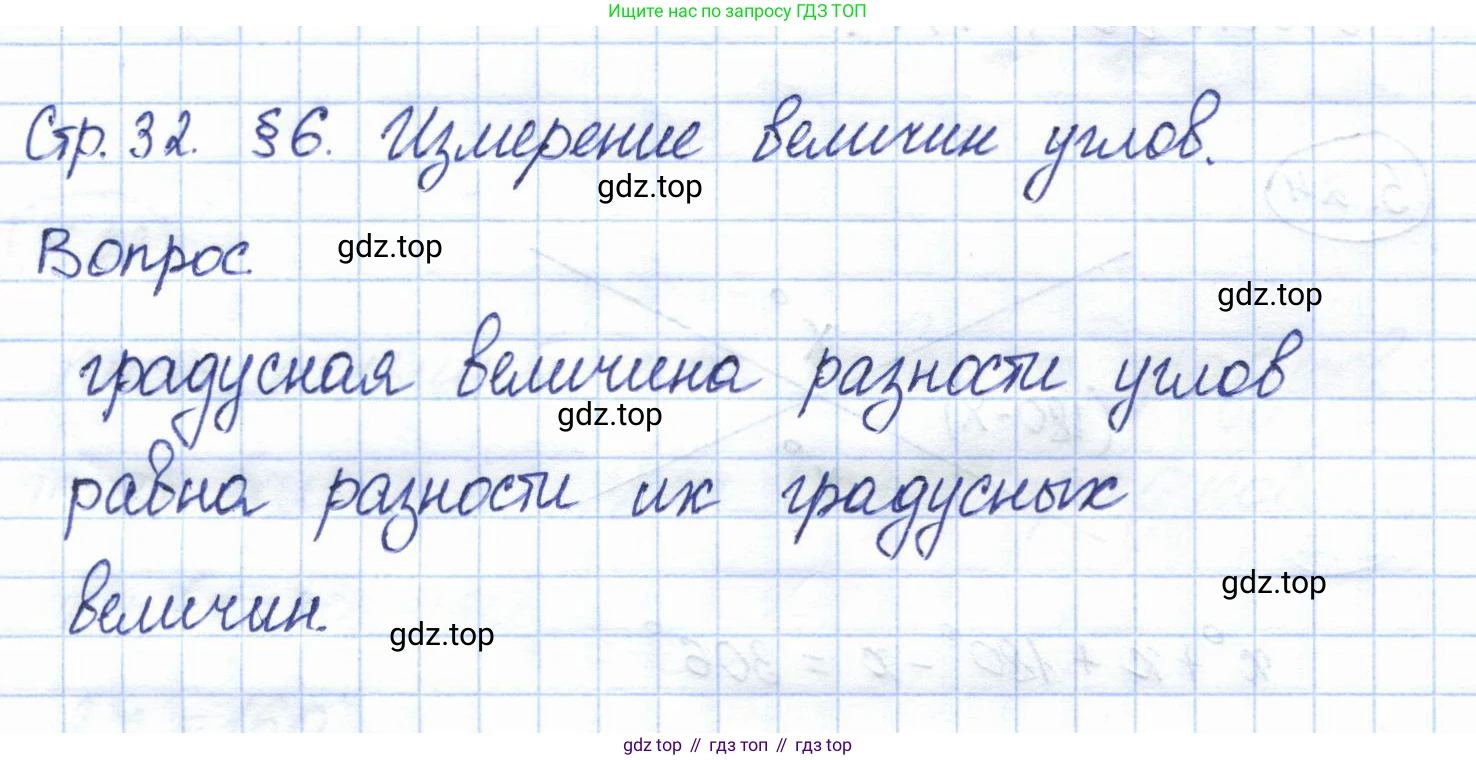 Ищите нас по запросу ГДЗ ТОП
Стр. 32. §6. Измерение величин углов.
gdz.top
Вопрос.
gdz.top
gdz.top
градусная величина разности углов
gdz.top
равна разности их градусных
gdz.top
величин.
gdz.top
gdz top // гдз топ // гдз top